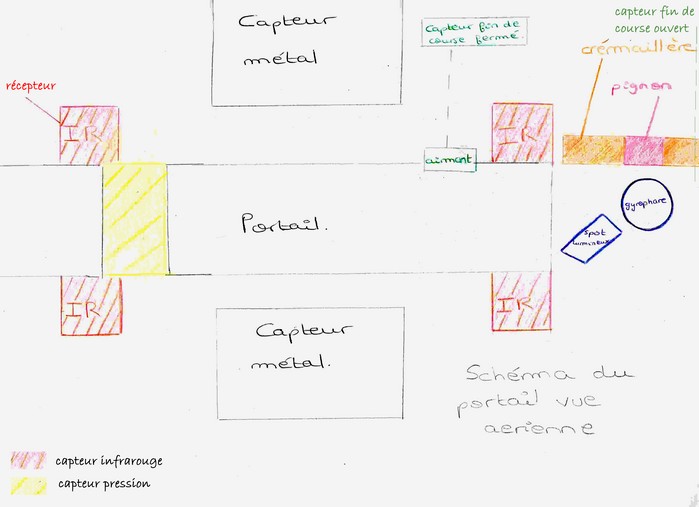 Capteur
métal
Capteur fin de
course fermé.
capteur fin de
course ouvert
crémaillère
récepteur
pignon
IR
IR
aimant
gyrophare
Portail.
spot
lumineux
IR
IR
Capteur
métal.
Schéma du
portail vue
aerienne
capteur infrarouge
capteur pression